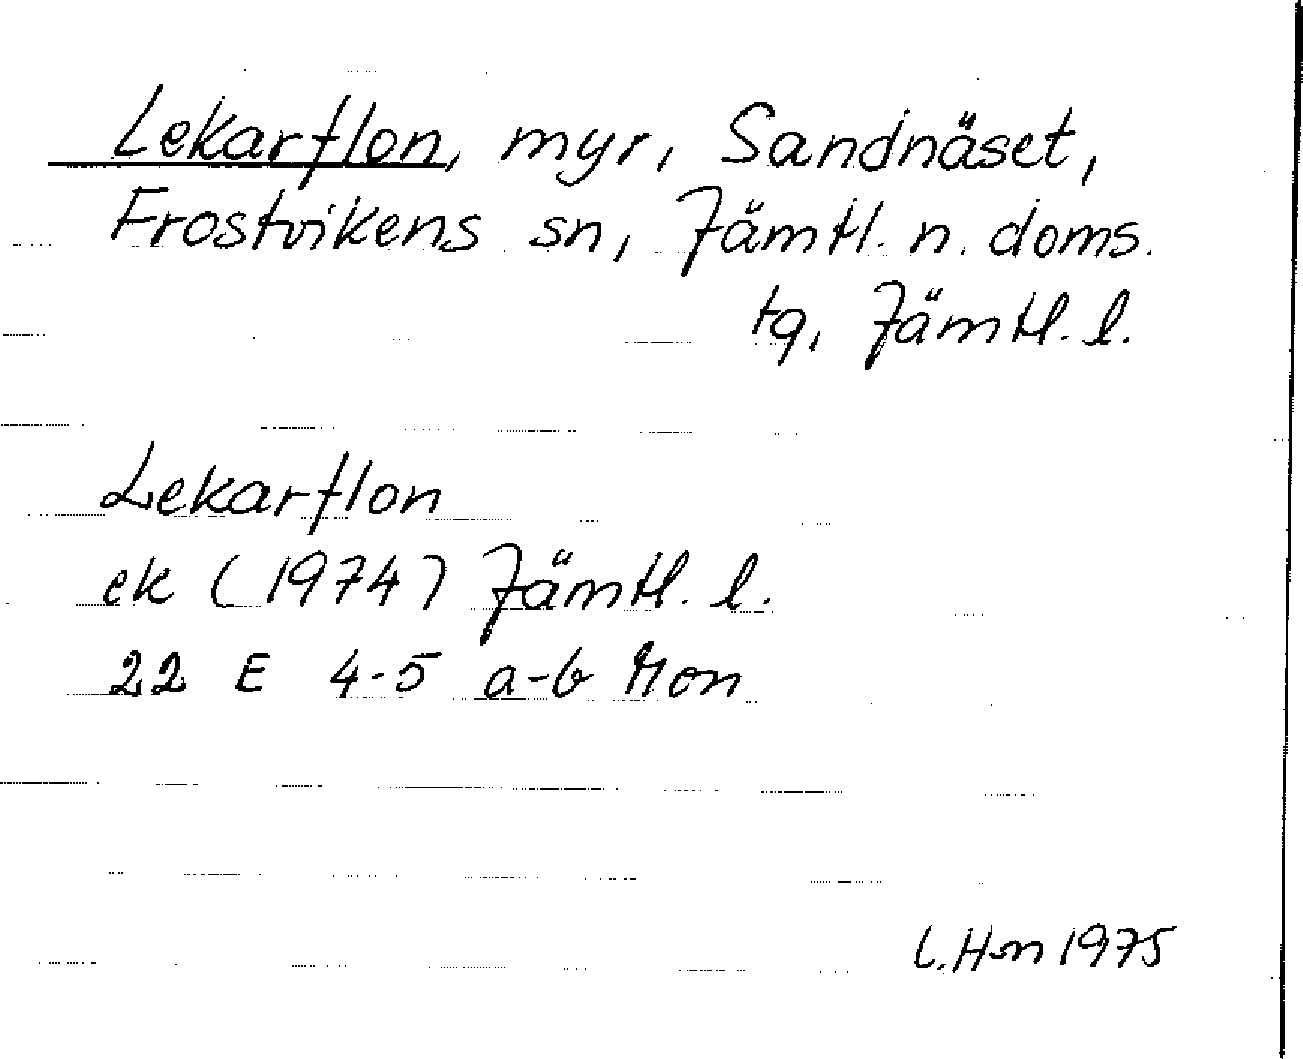 Lekarflon, myr, Sandnäset,
Frostvikens sn, Jämtl. n. doms.
tg, Jämtl. l.
Lekarflon
ek (1974) Jämtl. l.
22 E 4-5 a-b Mon
L. H-n 1975